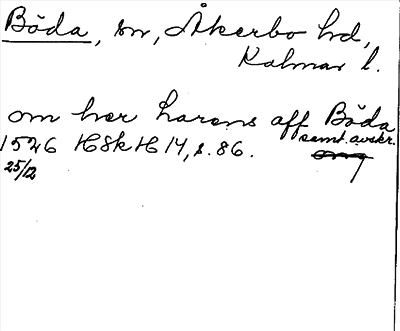 Böda, sn, Åkerbo hd,
Kalmar l.
om her harens aff Böda
1526 HSkH 14, s. 86. samt. avskr.
25/12